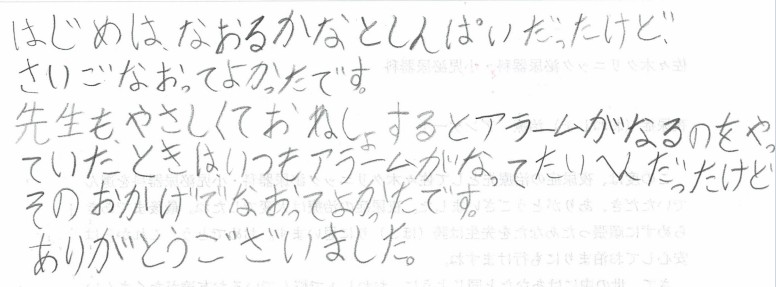 はじめは、なおるかなとしんぱいだったけど、
さいごなおってよかったです。
先生も、やさしくておねしょするとアラームがなるのをやっ
ていたときは、いつもアラームがなってたいへんだったけど
そのおかげでなおってよかったです。
ありがとうございました。